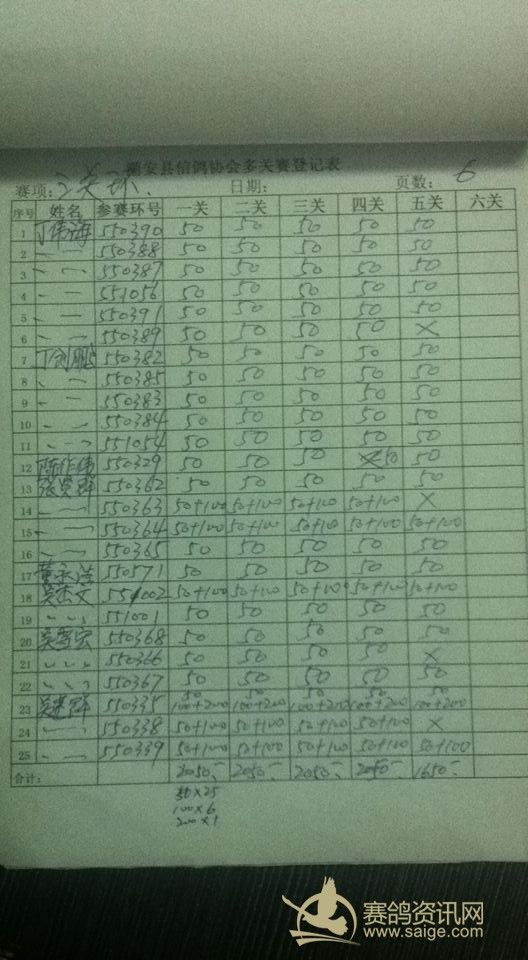 潮安县信鸽协会多关赛登记表
赛项: 关环 日期: 页数: 6
序号 姓名 参赛环号 一关 二关 三关 四关 五关 六关
1 丁伟海 550390 50 50 50 50 50
2 〃 〃 550388 50 50 50 50 50
3 〃 〃 550387 50 50 50 50 50
4 〃 〃 551056 50 50 50 50 50
5 〃 〃 550391 50 50 50 50 50
6 〃 〃 550389 50 50 50 50 ×
7 丁剑鹏 550382 50 50 50 50 50
8 〃 〃 550385 50 50 50 50 50
9 〃 〃 550383 50 50 50 50 50
10 〃 〃 550384 50 50 50 50 50
11 〃 〃 551054 50 50 50 50 50
12 陈作伟 550329 50 50 50 50 50
13 550362 50 50 50 50 50
14 〃 〃 550363 50+100 50+100 50+100 50+100 ×
15 〃 〃 550364 50+100 50+100 50+100 50+100 50+100
16 〃 〃 550365 50 50 50 50 50
17 550571 50 50 50 50 50
18 吴杰文 551002 50+100 50+100 50+100 50+100 50+100
19 〃 〃 551001 50 50 50 50 50
20 550368 50 50 50 50 50
21 〃 〃 550366 50 50 50 50 ×
22 〃 〃 550367 50 50 50 50 50
50 50 50 50 50
23 550335 100+200 100+200 100+200 100+200 100+200
24 〃 〃 550338 50+100 50+100 50+100 50+100 ×
25 〃 〃 550339 50+100 50+100 50+100 50+100 50+100
合计: 2050- 2050- 2050- 2050- 1650-
50×25
100×6
200×1
赛鸽资讯网
www.saige.com